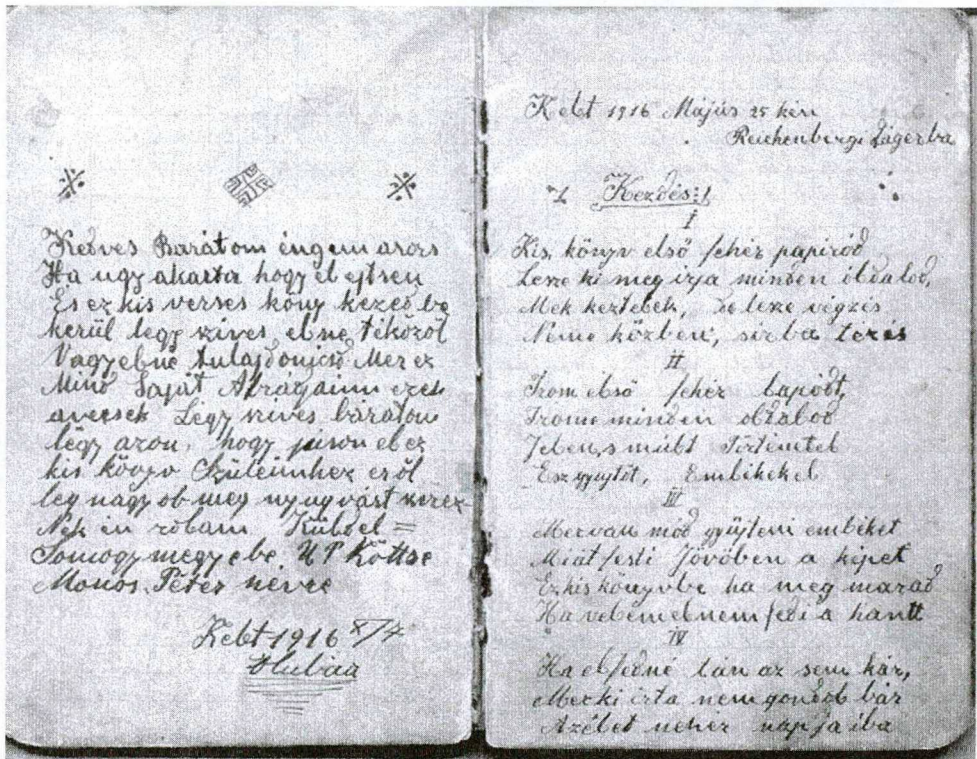 Kedves Barátom éngem
Ha ugy akarta hogy el ejtsen
És ez kis verses köny kezed be
kerül légy szives el ne téközöl
Vagy el ne tulajdonicsd Mer ez
Mind Saját Abrazaim ezek
a versek Légy szives bárátom
légy azon, hogy juson el ez
kis könyv Szüleimhez eről
leg nagyob meg nyugvást szerez
Nék én rólam Küldel =
Somogy megyebe. U P Köttse
Monos Péter névre
Kelt 1916 X/7
Kelt 1916 Május 25 kén
Reichenbergi Lágerba
Kezdés:
I
Kis, könyv első fehér papiród
Lesze ki meg irja minden óldalod,
Mek keztelek, de lesze végzés
Nemo közben, sirba tezés
II
Irom első fehér lapódt,
Irom minden oldalod
Jelen, s múlt Történetel
Ez gyujtöt, Emlékekel
III
Mer van mód gyűjteni emléket
Miát festi Jövőben a képet
Ez kis könyvbe ha meg marad
Ha velem el nem fedi a hantt
IV
Ha el fedné tán az sem kár,
Mer ki irta nem gondolt bár
Az élet nehez napja iba